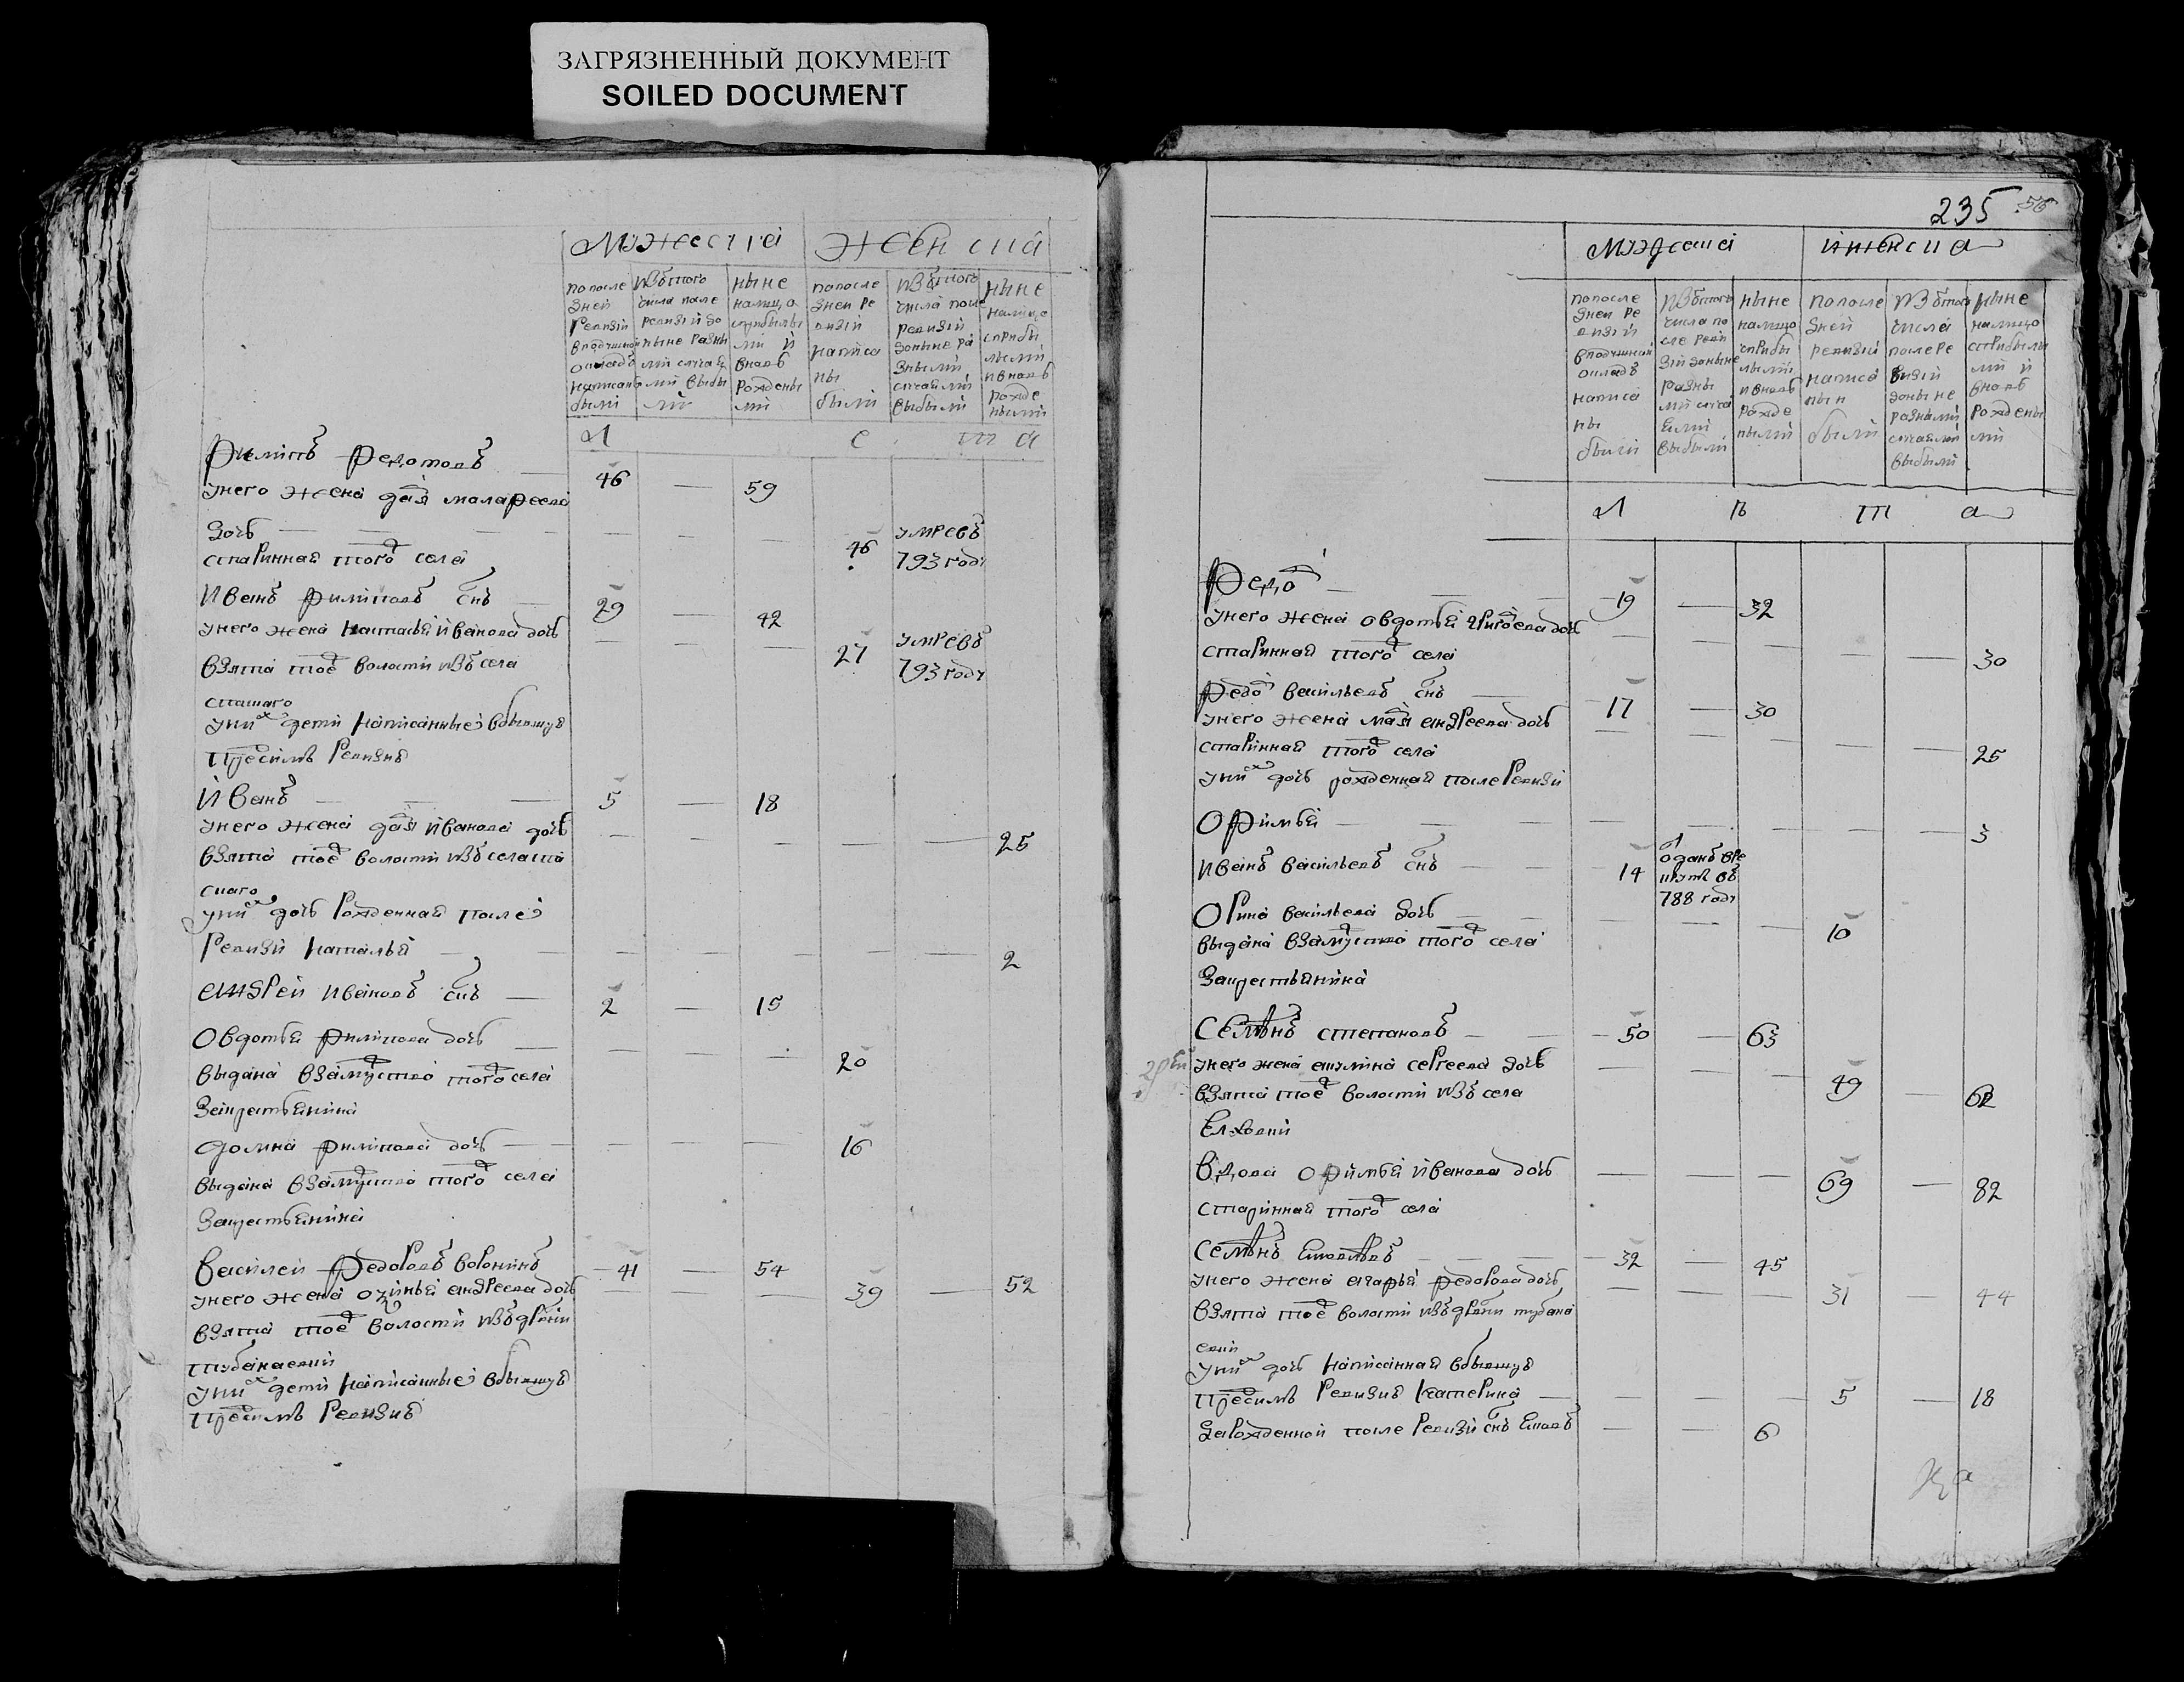 ЗАГРЯЗНЕННЫЙ ДОКУМЕНТ
SOILED DOCUMENT
Мужеска Женска
по после дней ревизии в подушной оклад написаны были
изъ того числа после ревизии до ныне разными случаями выбыли
ныне налицо с прибылыми и вновь рожденными
по после дней ревизии написаны были
изъ того числа после ревизии до ныне разными случаями выбыли
ныне налицо с прибылыми и вновь рожденными
Л С т а
Филипъ Федотовъ — 46 — 59
у него жена дарья малафеева
дочь — — — — 46 умре въ
старинная того села 793 году
Иванъ Филиповъ снъ — 29 — 42
у него жена настасья иванова дочь — — — 27 умре въ
взята тое волости изъ села 793 году
у них дети написанные в бывшую
пред сим ревизию
Иванъ — — — 5 — 18
у него жена дарья иванова дочь — — — — — 25
взята тое волости изъ села
скаго
у них дочь рожденная после
ревизии наталья — — — — — — — 2
андрей ивановъ снъ — 2 — 15
Овдотья филипова дочь — — — — 20
выдана в замуство того села
за крестьянина
домна филипова дочь — — — — 16
выдана в замуство того села
за крестьянина
Василей Федоровъ воронинъ — 41 — 54
у него жена аксинья андреева дочь — — — 39 — 52
взята тое волости изъ дрвни
тубанаевки
у них дети написанные в бывшую
пред сим ревизию
235 56
Мужеска и женска
по после дней ревизии в подушной окладъ написаны были
изъ того числа после ревизии до ныне разными случаями выбыли
ныне налицо с прибылыми и вновь рожденными
по после дней ревизии написаны были
изъ того числа после ревизии до ныне разными случаями выбыли
ныне налицо с прибылыми и вновь рожденными
Л ѣ т а
Федо — — — 19 — 32
у него жена овдотья григоева дочь — — — — — 30
стариннаа того села
Федо васильевъ снъ — 17 — 30
у него жена марья андреева дочь — — — — — 25
стариннаа того села
у них дочь рожденная после ревизии
Офимья — — — — — — — 3
иванъ васильевъ снъ — — 14 отданъ в рекруты въ 788 году
Орина васильева дочь — — — — — 10
выдана в замуство того села
за крестьянина
Семенъ степановъ — — 50 — 63
у него жена акулина сергеева дочь — — — 49 — 62
взята тое волости изъ села
Елховки
вдова офимья иванова дочь — — — 69 — 82
стариннаа того села
Семенъ Яковлевъ — — — 32 — 45
у него жена агафья федорова дочь — — — 31 — 44
взята тое волости изъ дрвни тубана
евки
у них дочь написанная в бывшую
пред сим ревизию катерина — — — — 5 — 18
да рожденной после ревизии снъ Яковъ — — 6